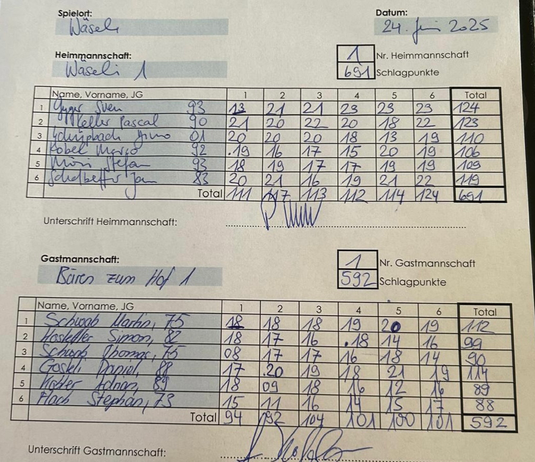 Spielort:
Wäseli
Datum:
24. Juni 2025
Heimmannschaft:
Wäseli 1
1 Nr. Heimmannschaft
691 Schlagpunkte
Name, Vorname, JG 1 2 3 4 5 6 Total
1 Sven 93 13 21 21 23 23 23 124
2 Keller Pascal 90 21 20 22 20 18 22 123
3 01 20 20 20 18 13 19 110
4 Marco 92 19 16 17 15 20 19 106
5 Möri Stefan 93 18 19 17 17 19 19 109
6 Jan 83 20 21 16 19 21 22 119
Total 111 117 113 112 114 124 691
Unterschrift Heimmannschaft:
Gastmannschaft:
Bären zum Hof 1
1 Nr. Gastmannschaft
592 Schlagpunkte
Name, Vorname, JG 1 2 3 4 5 6 Total
1 Schwab Martin, 75 18 18 18 19 20 19 112
2 Simon, 82 18 17 16 18 14 16 99
3 Schwab Thomas, 75 08 17 17 16 18 14 90
4 Daniel, 88 17 20 19 18 21 19 114
5 Adrian, 89 18 09 18 16 12 16 89
6 Stephan, 73 15 11 16 14 15 17 88
Total 94 92 104 101 100 101 592
Unterschrift Gastmannschaft: